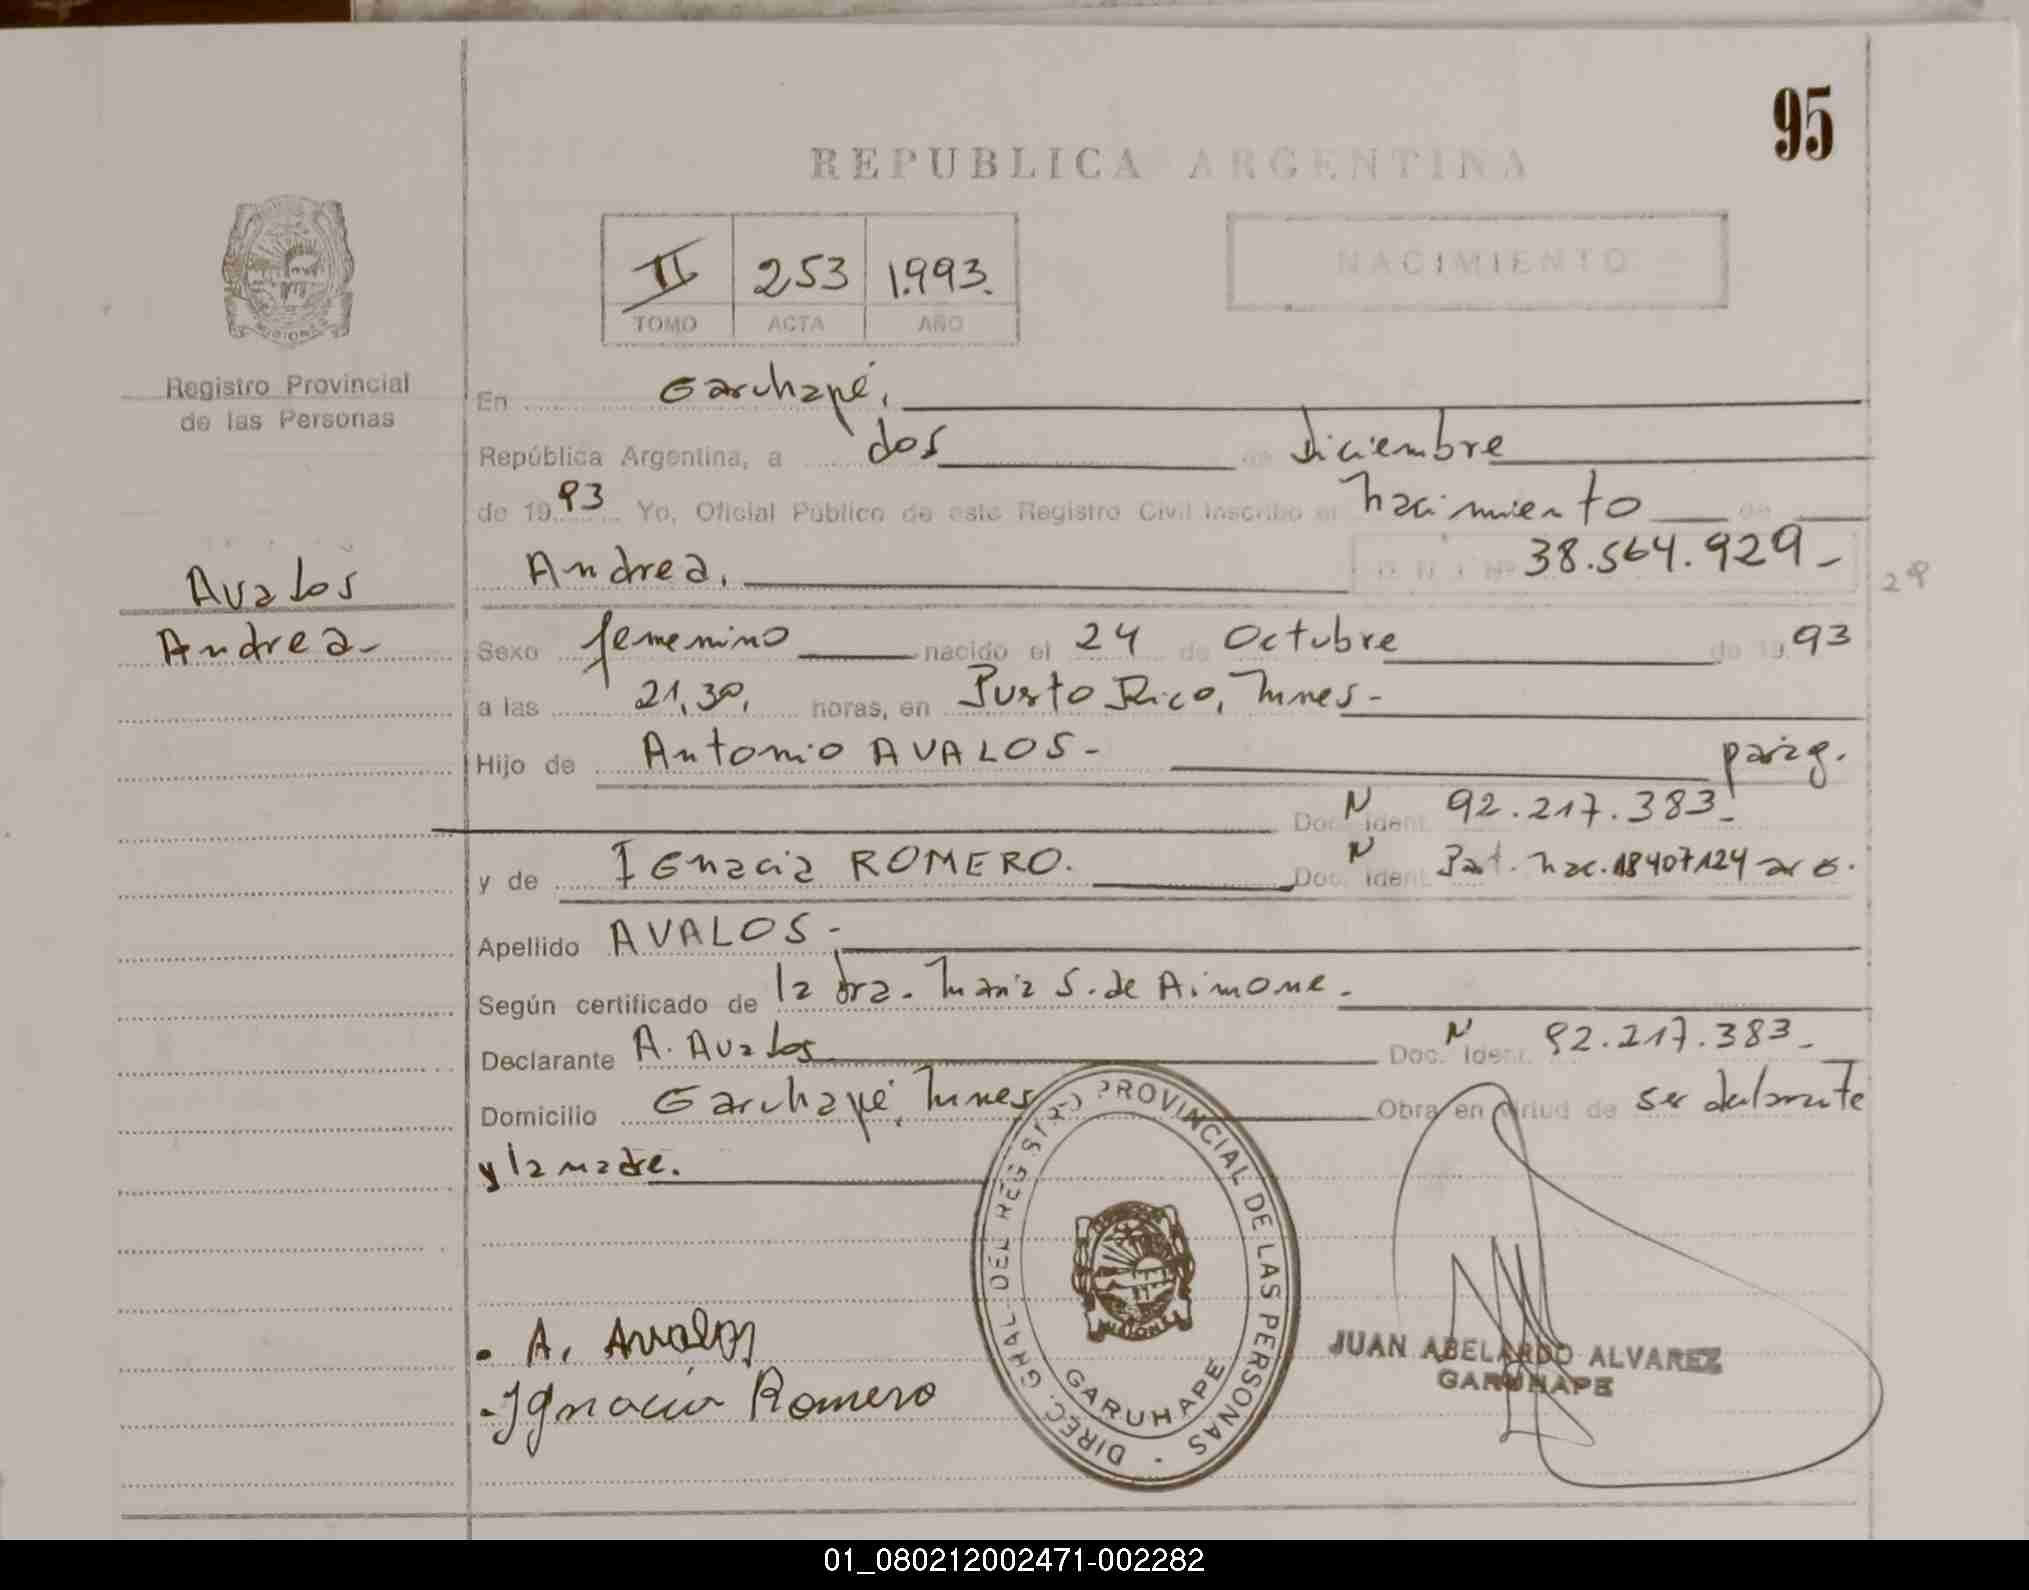 95
REPUBLICA ARGENTINA
NACIMIENTO
II 253 1.993.
TOMO ACTA AÑO
MISIONES
Registro Provincial
de las Personas
Avalos
Andrea-
En Garuhapé,
República Argentina, a dos de diciembre
de 1993 Yo, Oficial Público de este Registro Civil inscribo el nacimiento de
Andrea, D N I Nº 38.564.929-
29
Sexo femenino nacido el 24 de Octubre de 1993
a las 21,30, horas, en Puerto Rico, Mnes-
Hijo de Antonio AVALOS- parag.
Doc. Ident. N 92.217.383-
y de Ignacia ROMERO. Doc. Ident. N Part. Nac. 18407124
Apellido AVALOS-
Según certificado de la Dra. Maria S. de Aimone.
Declarante A. Avalos Doc. Ident. N 92.217.383-
Domicilio Garuhapé, Mnes Obra en virtud de ser declarante
y la madre.
DIREC. GRAL. DEL REGISTRO PROVINCIAL DE LAS PERSONAS
GARUHAPE
MISIONES
. A. Avalos
-Ignacia Romero
JUAN ABELARDO ALVAREZ
GARUHAPE
01_080212002471-002282